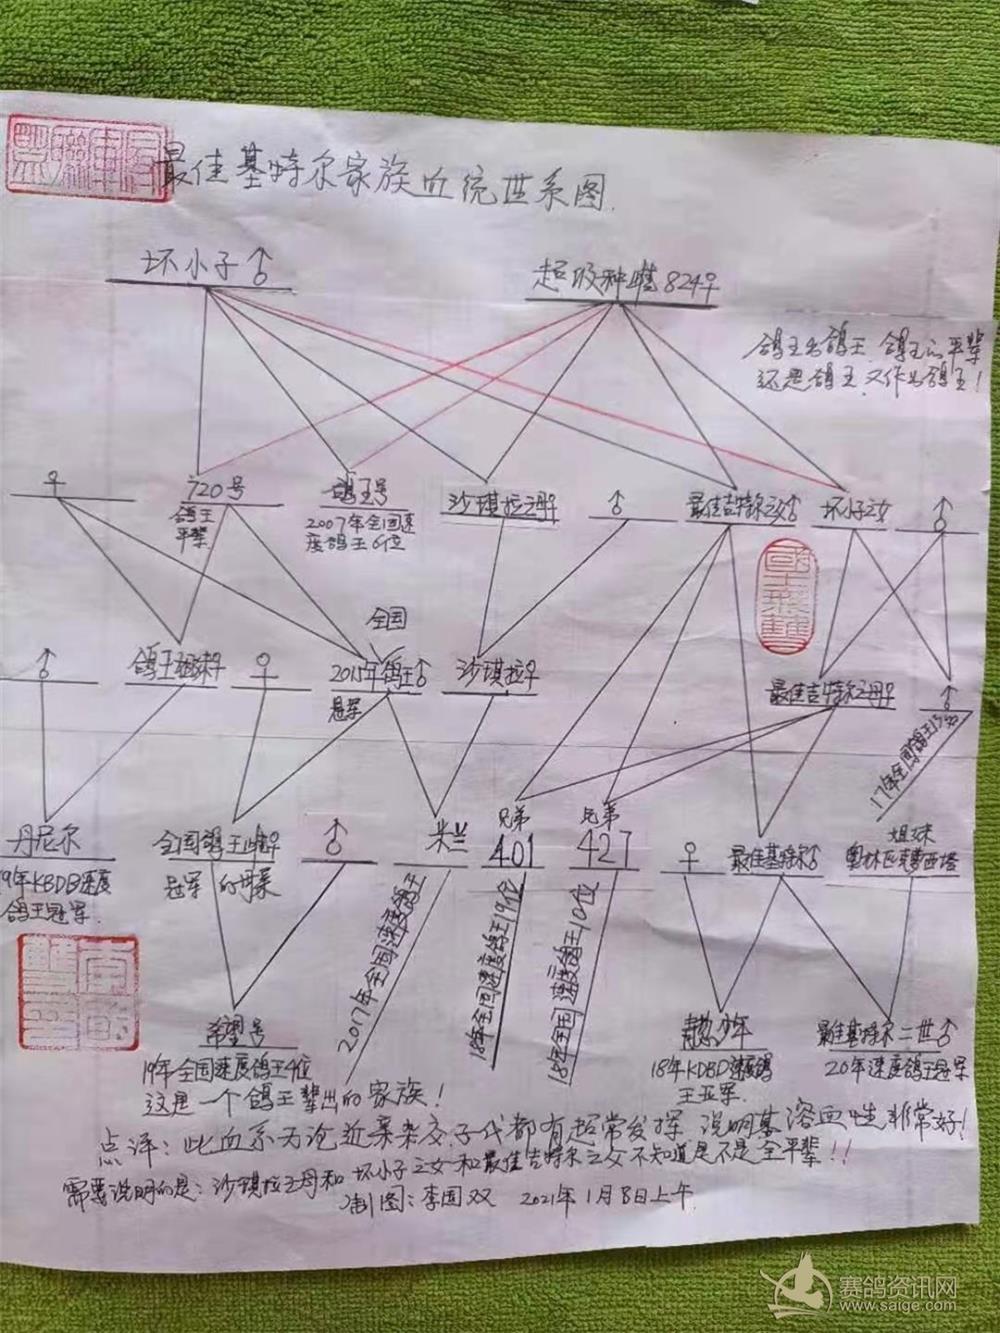 最佳基特尔家族血统世系图.
坏小子♂
超级种雌824♀
鸽王出鸽王、鸽王的平辈
还是鸽王、又作出鸽王!
♀
720号
鸽王
平辈
鸽王号
2007年全国速
度鸽王6位
沙琪拉之母♀
♂
最佳吉特尔之父♂
坏小子之女
♂
全国
♂
鸽王姐妹♀
♀
2015年鸽王♂
冠军
沙琪拉♀
最佳吉特尔之母♀
♂
17年全国鸽王13位
丹尼尔
19年KBDB速度
鸽王冠军.
全国鸽王雌♀
冠军的母亲
♂
米兰
2017年全国速度鸽王
兄弟
401
18年全国速度鸽王19位
兄弟
427
18年全国速度鸽王10位
♀
最佳基特尔♂
姐妹
奥林匹克蒙西塔
希望号
19年全国速度鸽王4位
青愁少年
18年KDBD速度鸽
王亚军.
最佳基特尔二世♂
20年速度鸽王冠军
这是一个鸽王辈出的家族!
点评:此血系无论近亲杂交子代都有超常发挥 说明基溶血性非常好!
需要说明的是:沙琪拉之母和坏小子之女和最佳吉特尔之父不知道是不是全平辈!!
制图:李国双 2021年1月8日上午
赛鸽资讯网
www.saige.com